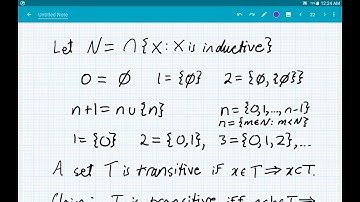 12:24 AM
Untitled Note
22
Let N = ∩{X : X is inductive}
0 = ∅ 1 = {∅} 2 = {∅, {∅}}
n+1 = n ∪ {n} n = {0, 1, ..., n-1}
n = {m ∈ N : m < n}
1 = {0} 2 = {0, 1}, 3 = {0, 1, 2}, ...
A set T is transitive if x ∈ T ⇒ x ⊂ T.
Claim: T is transitive iff